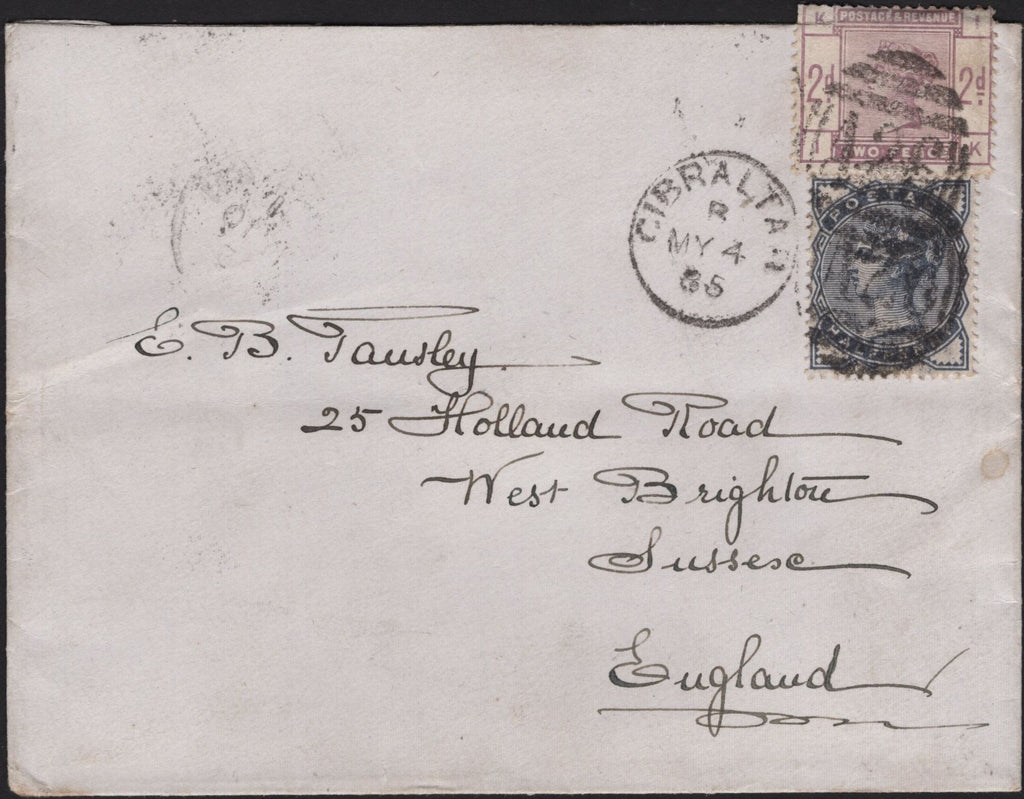 K POSTAGE & REVENUE I
2d 2d
I TWO PENCE K
POSTAGE
HALFPENNY
GIBRALTAR
B
MY 4
85
E. B. Tansley
25 Holland Road
West Brighton
Sussex
England